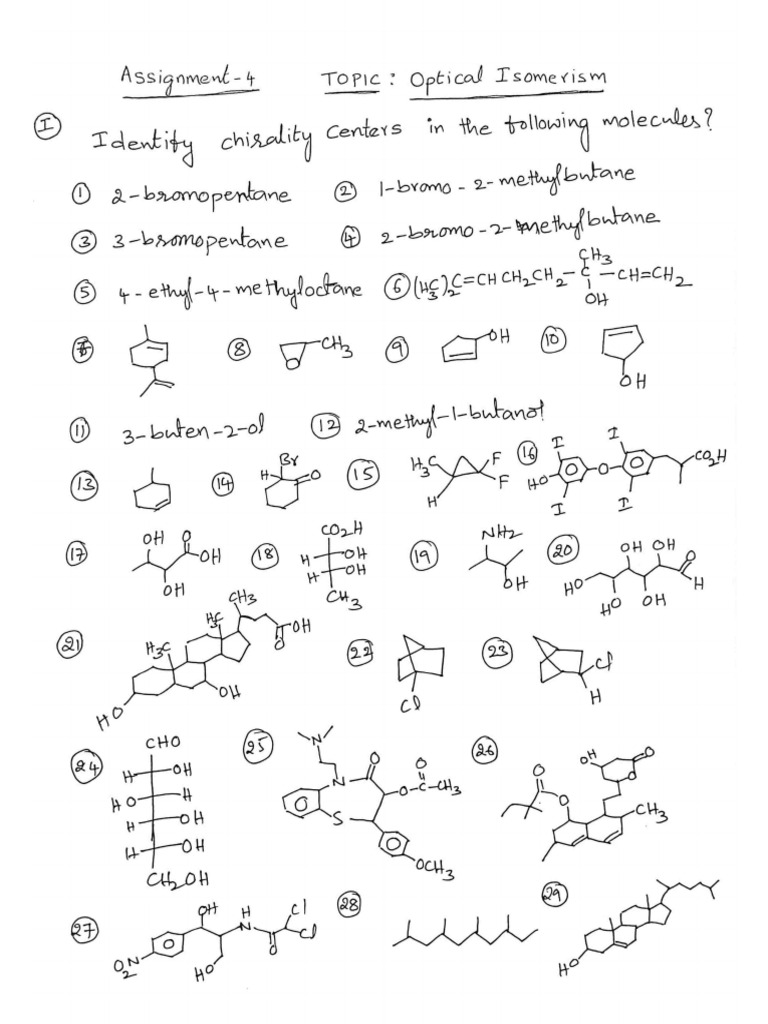 Assignment-4 TOPIC: Optical Isomerism
I Identify chirality centers in the following molecules?
1 2-bromopentane 2 1-bromo-2-methylbutane
3 3-bromopentane 4 2-bromo-2-methylbutane
5 4-ethyl-4-methyloctane 6 (H3C)2C=CHCH2CH2-C-CH=CH2
CH3
OH
7 8 CH3 O 9 OH 10 OH
11 3-buten-2-ol 12 2-methyl-1-butanol
13 14 H Br O 15 H3C H F F 16 HO I I O I I CO2H
17 OH O OH OH 18 CO2H H OH H OH CH3 19 NH2 OH 20 HO HO OH OH OH O H
21 HO H3C H3C CH3 OH O OH 22 Cl 23 Cl H
24 CHO
H OH
HO H
H OH
H OH
CH2OH
25 N N O O-C-CH3 O S OCH3
26 OH O O O O CH3
27 O2N OH H N O Cl Cl HO 28 29 HO